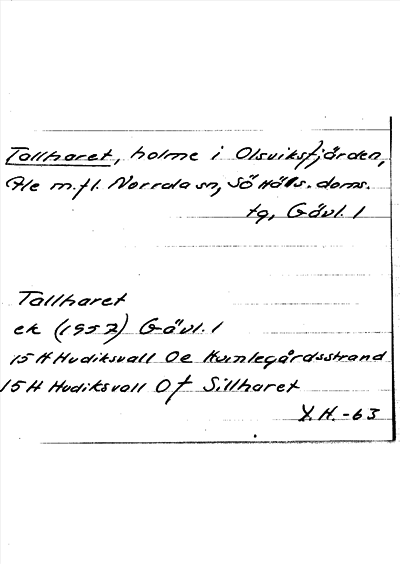 Tallharet, holme i Olsviksfjärden,
Åle m.fl. Norrdala sn, Sö Häls. doms.
tg, Gävl. l
Tallharet
ek (1957) Gävl. l
15 H Hudiksvall 0e Kvinlegårdsstrand
15 H Hudiksvall 0f Sillharet
Y.H.-63